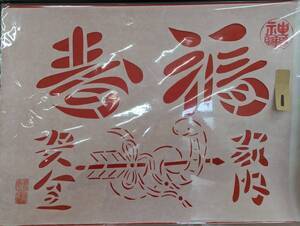 福寿
家内
安全